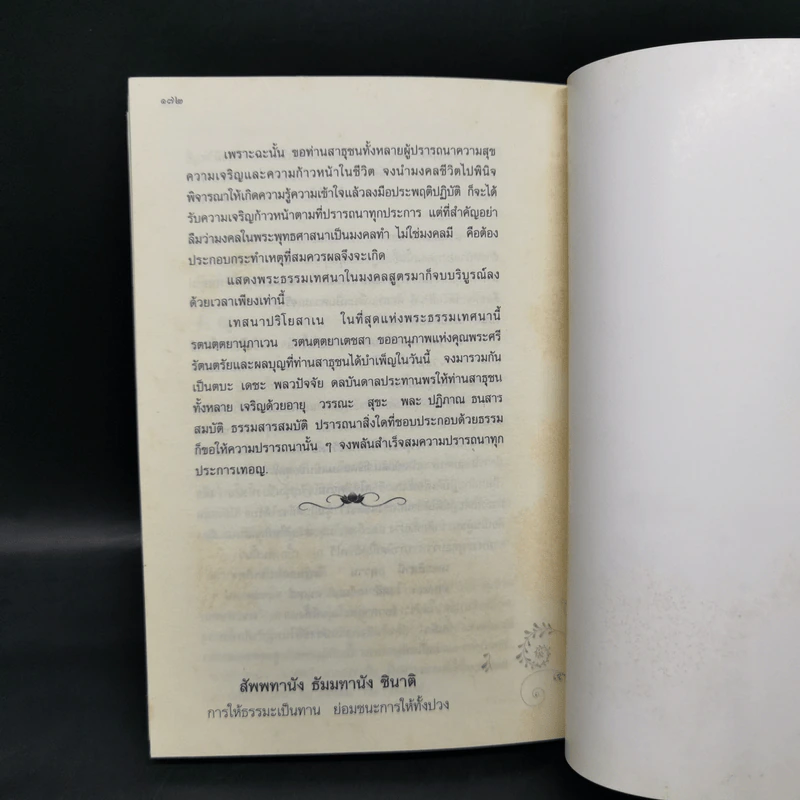 ๑๗๒
เพราะฉะนั้น ขอท่านสาธุชนทั้งหลายผู้ปรารถนาความสุข
ความเจริญและความก้าวหน้าในชีวิต จงนำมงคลชีวิตไปพินิจ
พิจารณาให้เกิดความรู้ความเข้าใจแล้วลงมือประพฤติปฏิบัติ ก็จะได้
รับความเจริญก้าวหน้าตามที่ปรารถนาทุกประการ แต่ที่สำคัญอย่า
ลืมว่ามงคลในพระพุทธศาสนาเป็นมงคลทำ ไม่ใช่มงคลมี คือต้อง
ประกอบกระทำเหตุที่สมควรผลจึงจะเกิด
แสดงพระธรรมเทศนาในมงคลสูตรมาก็จบบริบูรณ์ลง
ด้วยเวลาเพียงเท่านี้
เทสนาปริโยสาเน ในที่สุดแห่งพระธรรมเทศนานี้
รตนตฺตยานุภาเวน รตนตฺตยาเตชสา ขออานุภาพแห่งคุณพระศรี
รัตนตรัยและผลบุญที่ท่านสาธุชนได้บำเพ็ญในวันนี้ จงมารวมกัน
เป็นตบะ เดชะ พลวปัจจัย ดลบันดาลประทานพรให้ท่านสาธุชน
ทั้งหลาย เจริญด้วยอายุ วรรณะ สุขะ พละ ปฏิภาณ ธนสาร
สมบัติ ธรรมสารสมบัติ ปรารถนาสิ่งใดที่ชอบประกอบด้วยธรรม
ก็ขอให้ความปรารถนานั้น ๆ จงพลันสำเร็จสมความปรารถนาทุก
ประการเทอญ.
สัพพทานัง ธัมมทานัง ชินาติ
การให้ธรรมะเป็นทาน ย่อมชนะการให้ทั้งปวง